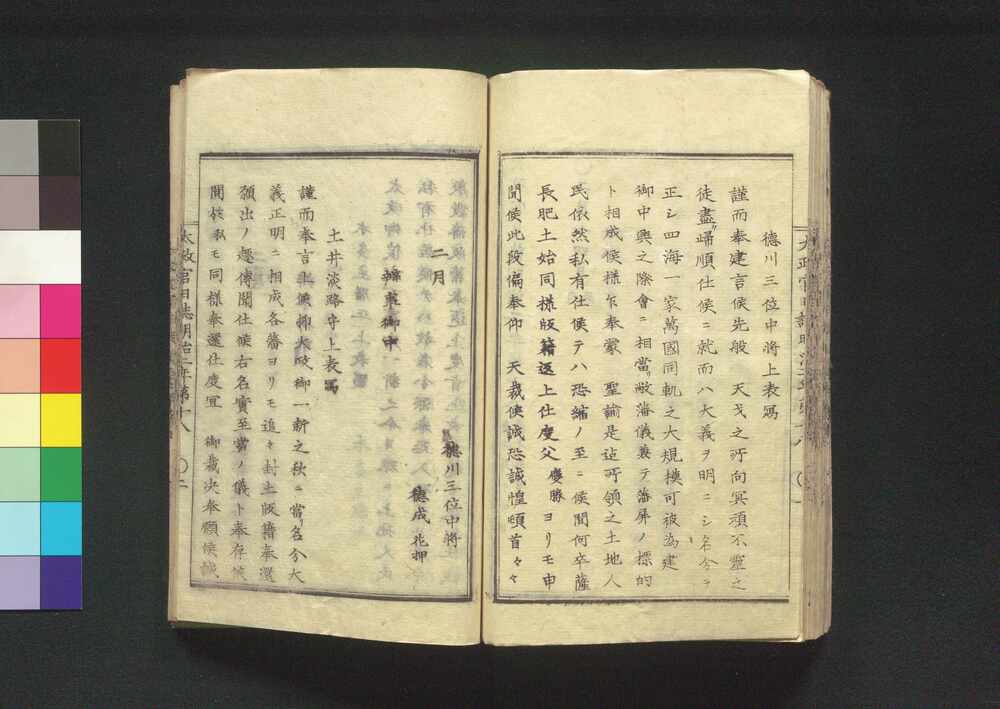 德川三位中將上表寫
謹而奉建言候先般 天戈之所向冥頑不靈之
徒盡ク歸順仕候ニ就而ハ大義ヲ明ニシ名分ヲ
正シ四海一家萬國同軌之大規模可被為建
御中興之際會ニ相當リ敝藩儀義テ藩屏ノ標的
ト相成候樣乍奉蒙 聖諭是迠所領之土地人
民依然私有仕候テハ恐縮ノ至ニ候間何卒薩
長肥土始同樣版籍返上仕度父慶勝ヨリモ申
聞候此段偏奉仰 天裁候誠恐誠惶頓首々々
二月
德川三位中將
德成花押
辨事御中
土井淡路守上表寫
謹而奉言上候抑大政御一新之秋ニ當リ名分大
義正明ニ相成各藩ヨリモ追々封土版籍奉還
願出ノ趣傳聞仕候右名實至當ノ儀ト奉存候
間於私モ同樣奉還仕度宜 御裁决奉願候誠
太政官日誌明治二年第十八
〇二